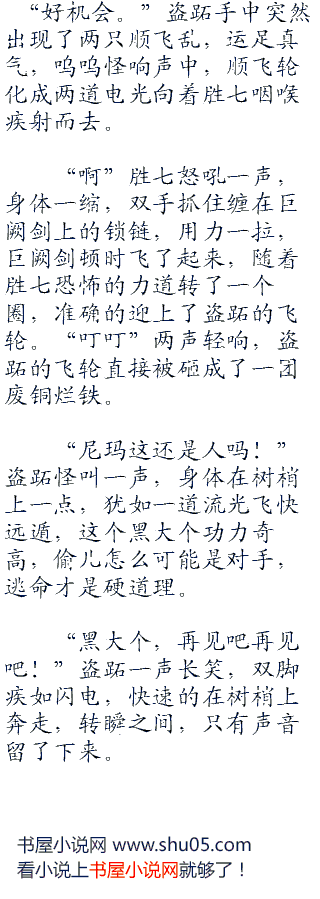 “好机会。”盗跖手中突然
出现了两只顺飞乱，运足真
气，呜呜怪响声中，顺飞轮
化成两道电光向着胜七咽喉
疾射而去。
“啊”胜七怒吼一声，
身体一缩，双手抓住缠在巨
阙剑上的锁链，用力一拉，
巨阙剑顿时飞了起来，随着
胜七恐怖的力道转了一个
圈，准确的迎上了盗跖的飞
轮。“叮叮”两声轻响，盗
跖的飞轮直接被砸成了一团
废铜烂铁。
“尼玛这还是人吗！”
盗跖怪叫一声，身体在树梢
上一点，犹如一道流光飞快
远遁，这个黑大个功力奇
高，偷儿怎么可能是对手，
逃命才是硬道理。
“黑大个，再见吧再见
吧！”盗跖一声长笑，双脚
疾如闪电，快速的在树梢上
奔走，转瞬之间，只有声音
留了下来。
书屋小说网 www.shu05.com
看小说上书屋小说网就够了！